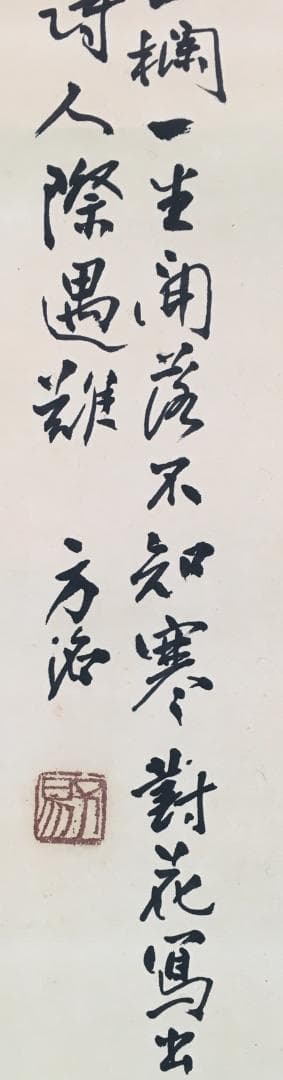 欄一坐開落不知寒對花寫出
詩人際遇難 方濬